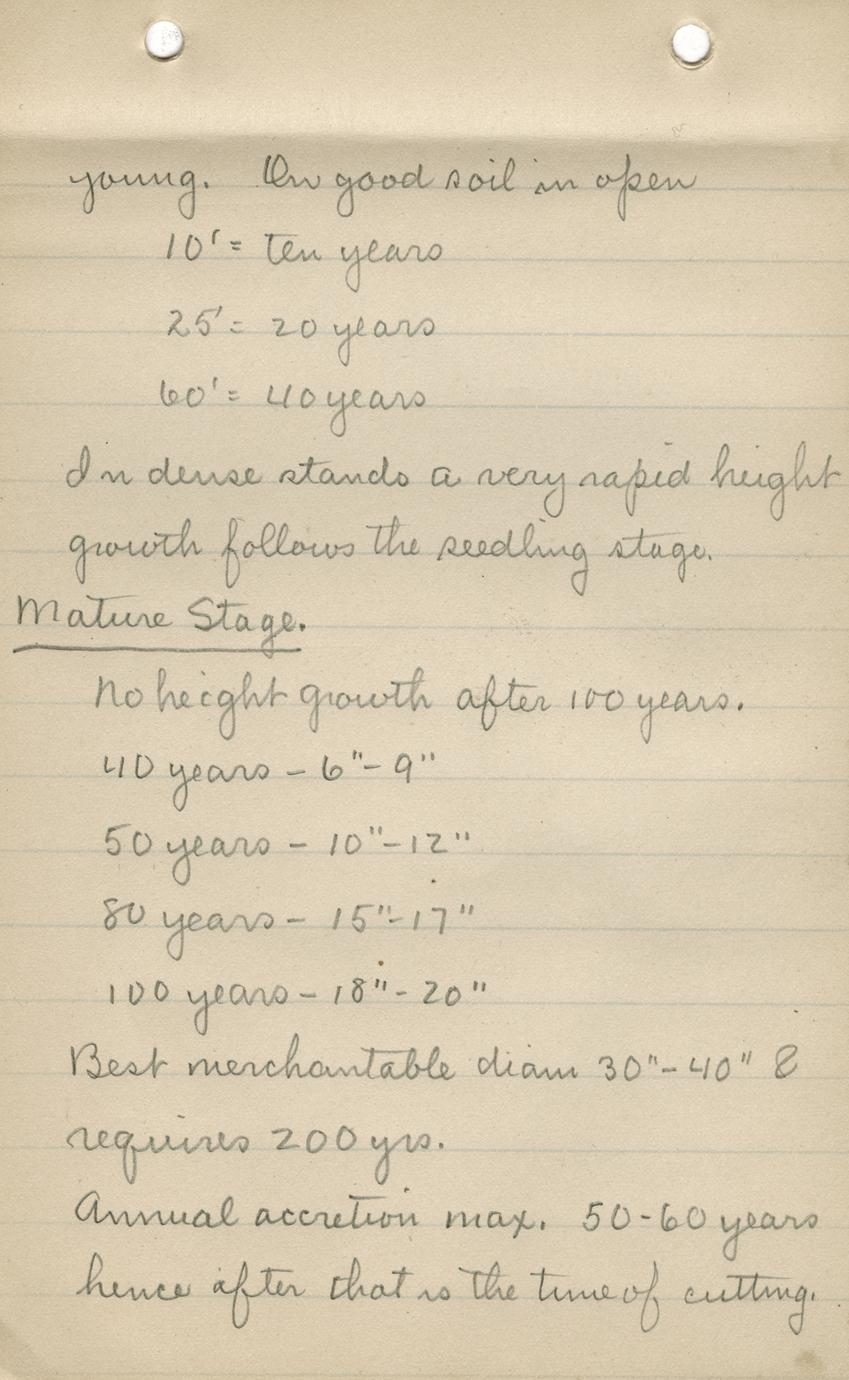 young. On good soil in open
10' = ten years
25' = 20 years
60' = 40 years
In dense stands a very rapid height
growth follows the seedling stage.
Mature Stage.
No height growth after 100 years.
40 years - 6" - 9"
50 years - 10" - 12"
80 years - 15" - 17"
100 years - 18" - 20"
Best merchantable diam 30" - 40" &
requires 200 yrs.
Annual accretion max. 50-60 years
hence after that is the time of cutting.